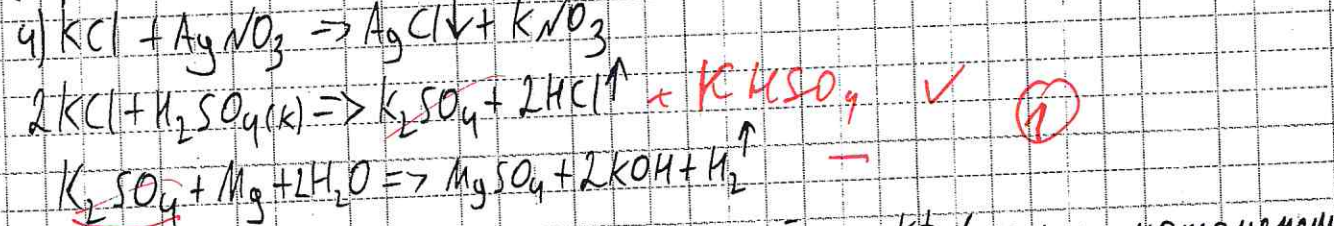 4) KCl + AgNO3 => AgCl↓ + KNO3
2KCl + H2SO4(к) => K2SO4 + 2HCl↑ + KHSO4 ✓ 1
K2SO4 + Mg + 2H2O => MgSO4 + 2KOH + H2↑ −